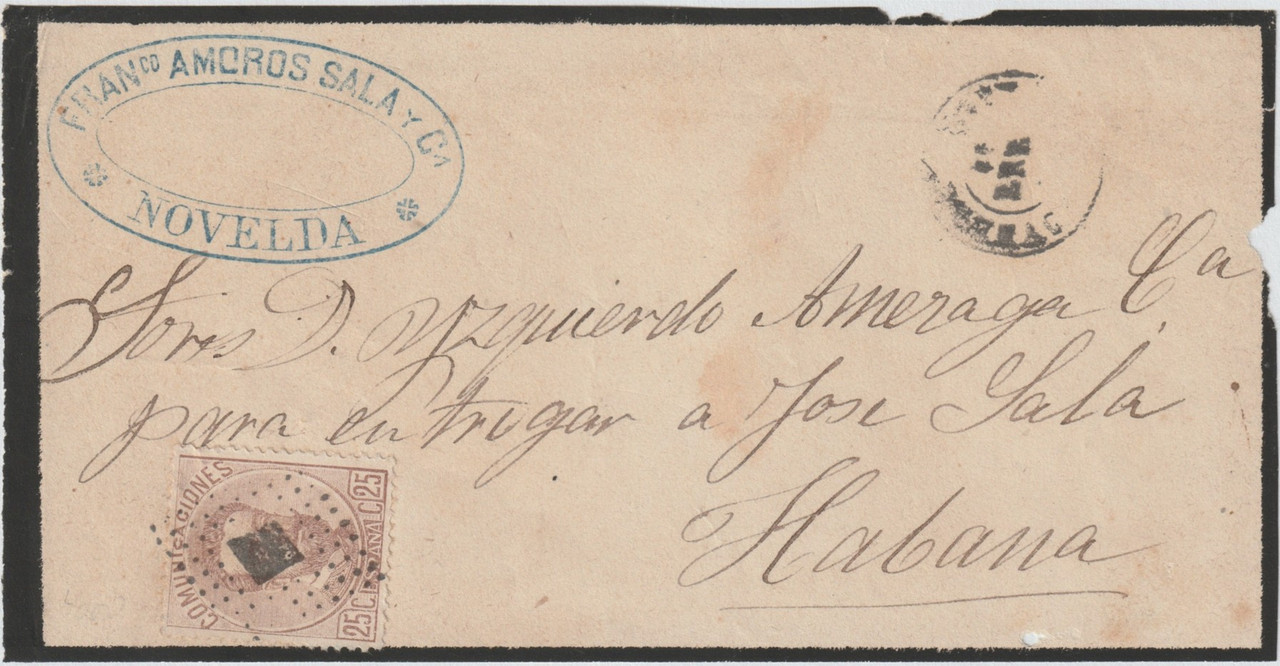 FRANco AMOROS SALA Y Ca
NOVELDA
ENE
Sores D. Yzquierdo Ameraga Ca
para en tregar a Jose Sala
Habana
COMUNICACIONES
25 C. ESPAÑA C. 25